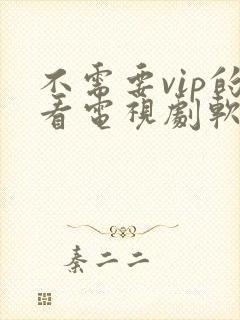 不需要vip的
看電視劇軟
秦二二